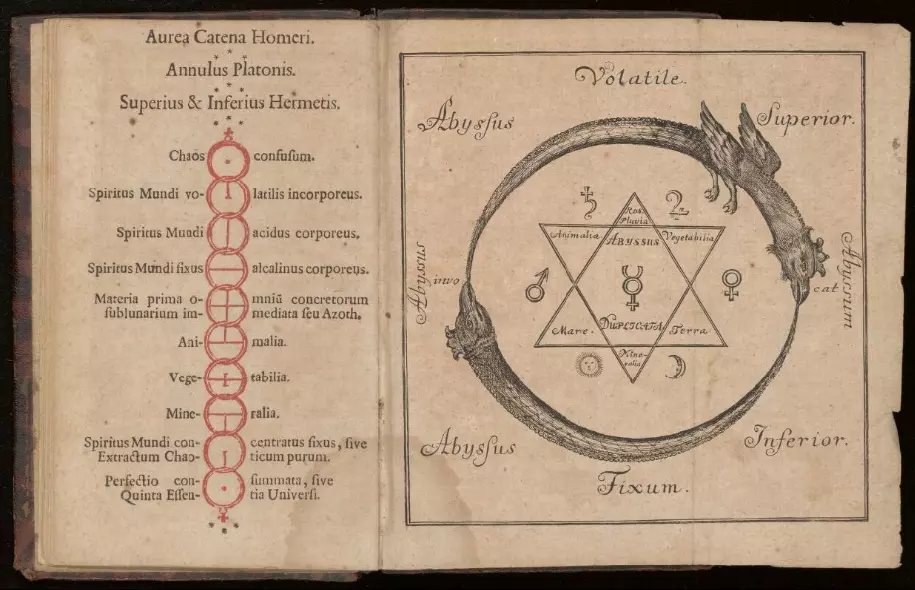 Aurea Catena Homeri.
Annulus Platonis.
Superius & Inferius Hermetis.
Chaos confusum.
Spiritus Mundi vo- latilis incorporeus.
Spiritus Mundi acidus corporeus.
Spiritus Mundi fixus alcalinus corporeus.
Materia prima o- mniũ concretorum
sublunarium im- mediata seu Azoth.
Ani- malia.
Vege- tabilia.
Mine- ralia.
Spiritus Mundi con- centratus fixus, sive
Extractum Chao- ticum purum.
Perfectio con- summata, sive
Quinta Essen- tia Universi.
Volatile.
Abyssus Superior.
Ros.
Pluvia
Animalia ABYSSUS Vegetabilia
Abyssus invo cat Abyssum
Mare. DUPLICATA Terra
Mine-
ralia
Abyssus Inferior.
Fixum.